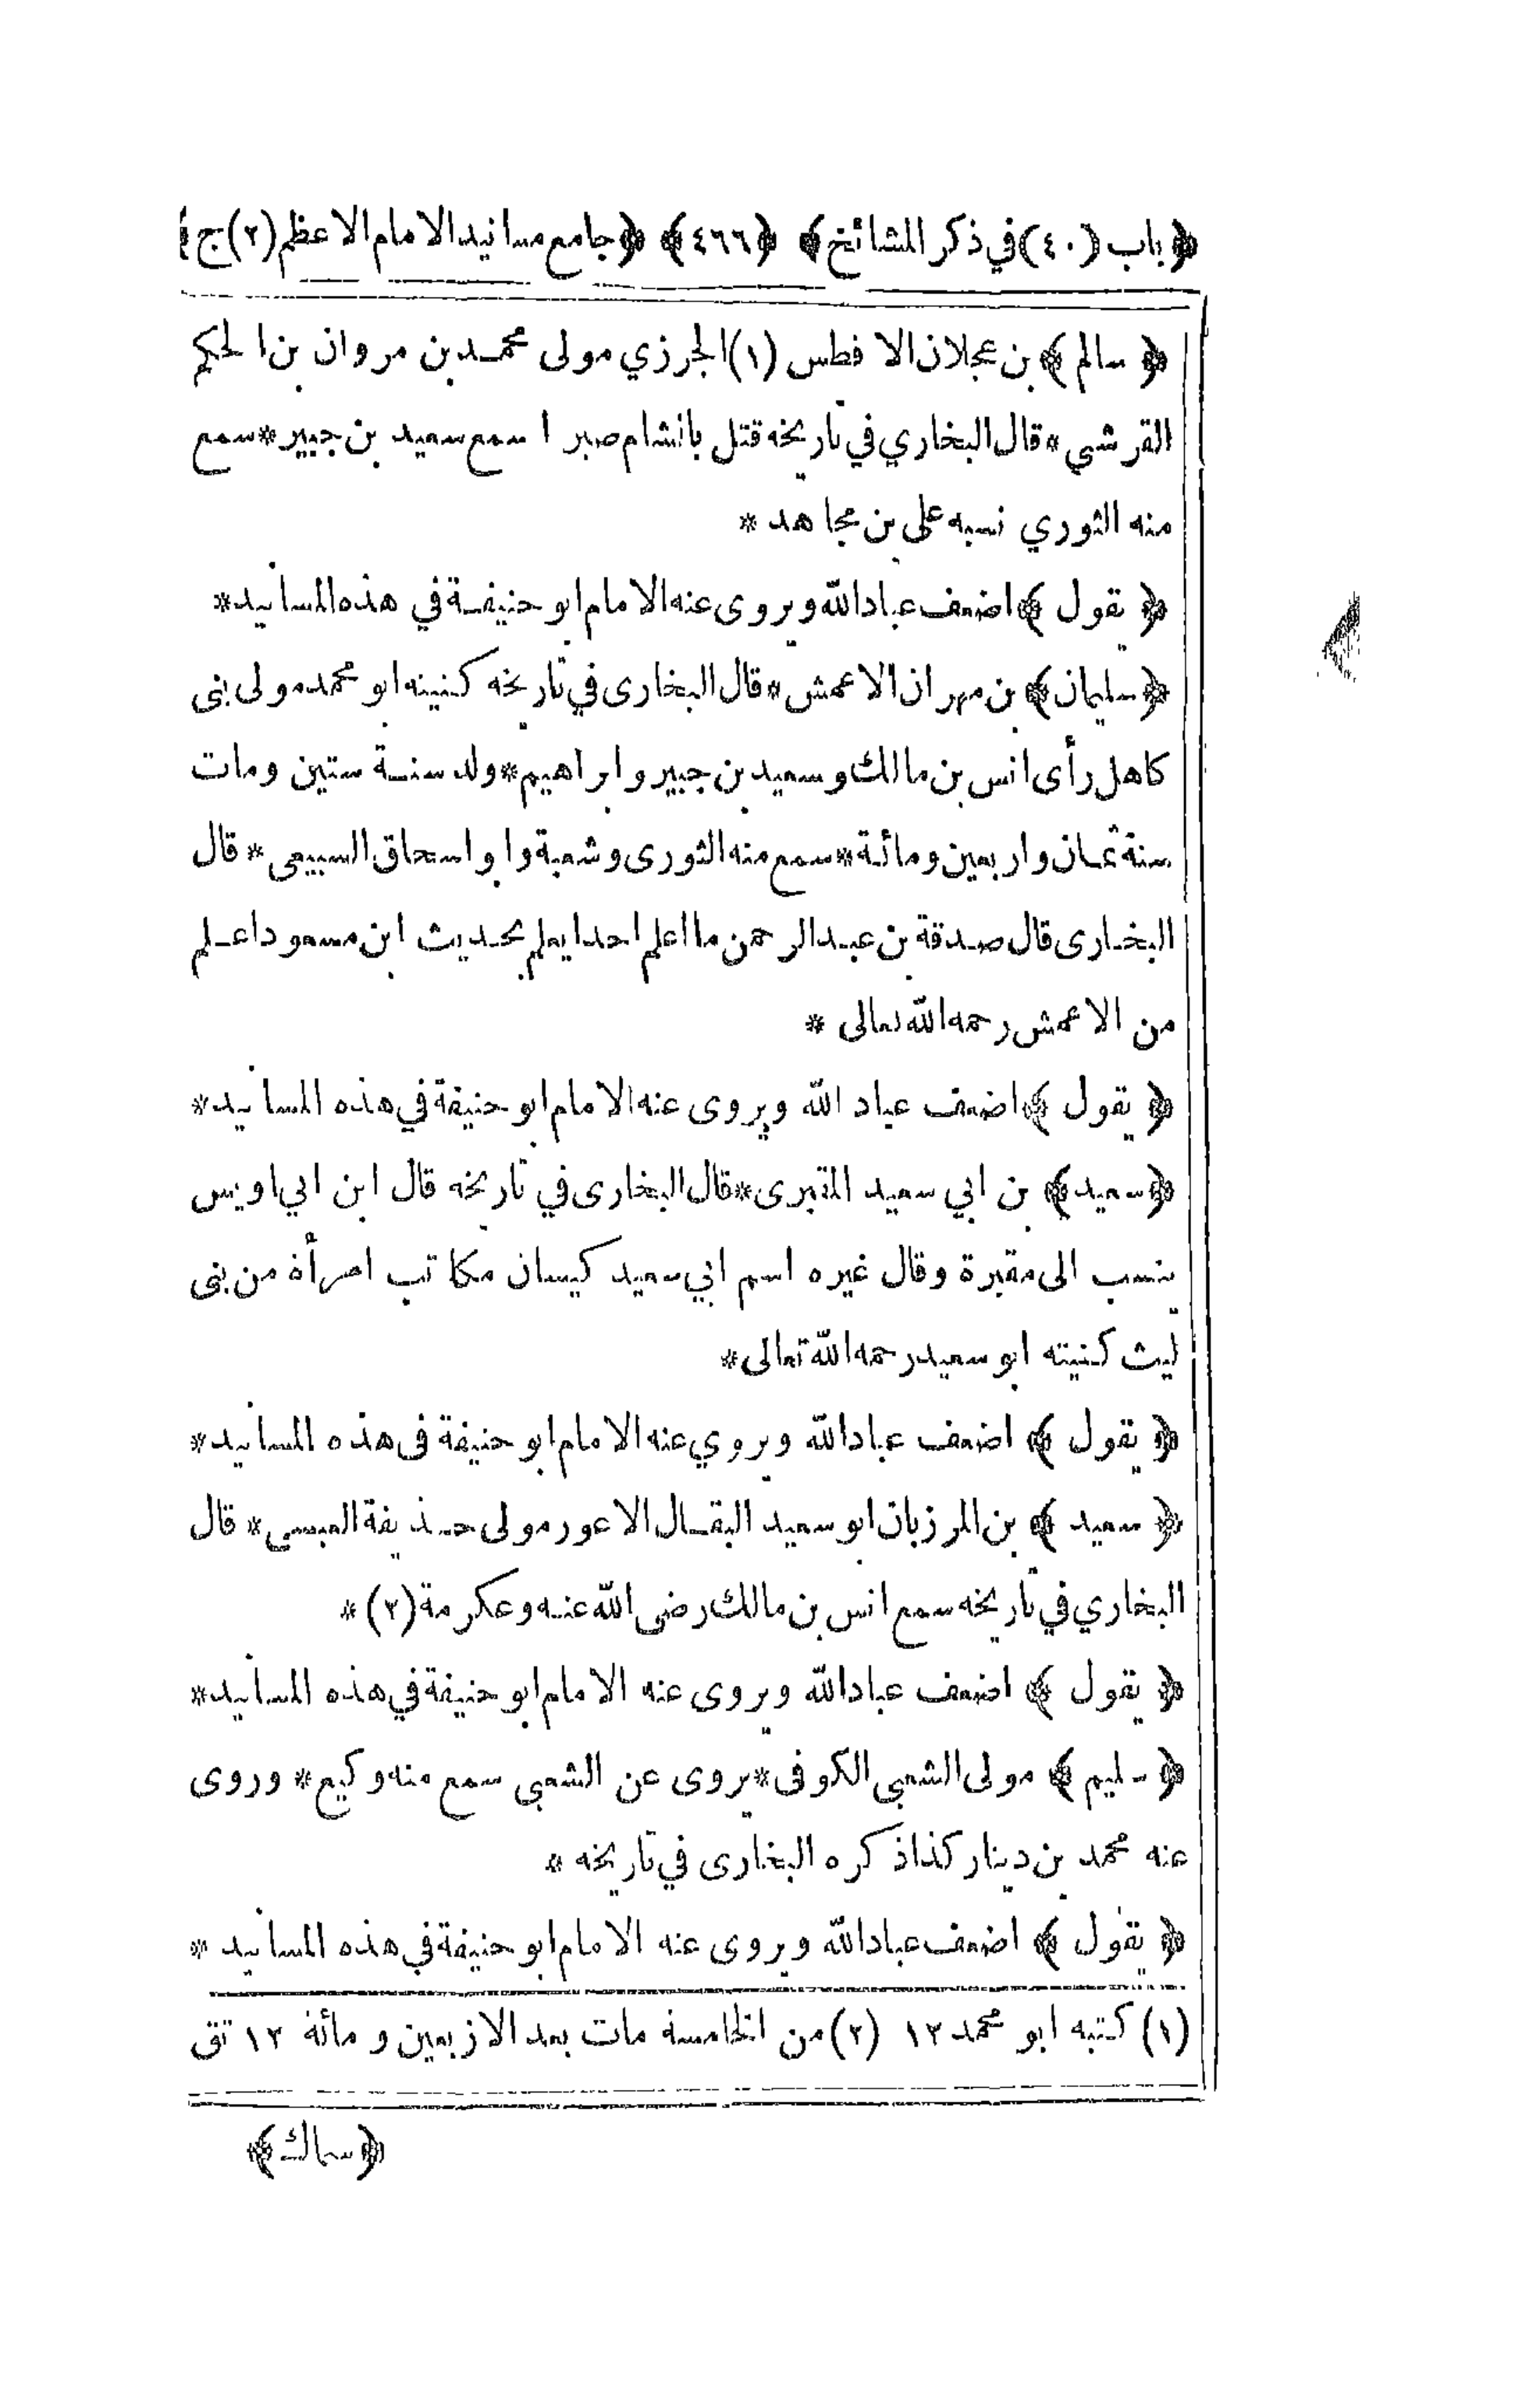 ﴿باب (٤٠) في ذكر المشائخ﴾ ﴿٤٦٦﴾ ﴿جامع مسانيد الامام الاعظم (٢) ج﴾
﴿ سالم ﴾ بن عجلان الا فطس (١) الجرزي مولى محمد بن مروان بن الحكم
القرشي * قال البخاري في تاريخه قتل بالشام صبر ا سمع سعيد بن جبير * سمع
منه الثوري نسبه على بن مجاهد *
﴿ يقول ﴾ اضعف عباد الله ويروى عنه الامام ابو حنيفة في هذه المسانيد *
﴿سليمان﴾ بن مهران الاعمش * قال البخارى في تاريخه كنيته ابو محمد مولى بنى
كاهل رأى انس بن مالك وسعيد بن جبير وابراهيم * ولد سنة ستين ومات
سنة ثمان واربعين ومائة * سمع منه الثورى وشعبة وابو اسحاق السبيعى * قال
البخارى قال صدقة بن عبد الرحمن ما اعلم احدا يعلم بحديث ابن مسعود اعلم
من الاعمش رحمه الله تعالى *
﴿ يقول ﴾ اضعف عباد الله ويروى عنه الامام ابو حنيفة في هذه المسانيد *
﴿سعيد﴾ بن ابي سعيد المقبرى * قال البخارى في تاريخه قال ابن ابي اويس
ينسب الى مقبرة وقال غيره اسم ابي سعيد كيسان مكاتب امرأة من بنى
ليث كنيته ابو سعيد رحمه الله تعالى *
﴿ يقول ﴾ اضعف عباد الله ويروي عنه الامام ابو حنيفة فى هذه المسانيد *
﴿ سعيد ﴾ بن المرزبان ابو سعيد البقال الاعور مولى حذيفة العبسى * قال
البخاري في تاريخه سمع انس بن مالك رضى الله عنه وعكرمة (٢) *
﴿ يقول ﴾ اضعف عباد الله ويروى عنه الامام ابو حنيفة في هذه المسانيد *
﴿ سليم ﴾ مولى الشعبي الكوفى * يروى عن الشعبي سمع منه وكيع * وروى
عنه محمد بن دينار كذا ذكره البخارى في تاريخه *
﴿ يقول ﴾ اضعف عباد الله ويروى عنه الامام ابو حنيفة في هذه المسانيد *
(١) كنيته ابو محمد ١٢ (٢) من الخامسة مات بعد الاربعين ومائة ١٢ تق
﴿سماك﴾